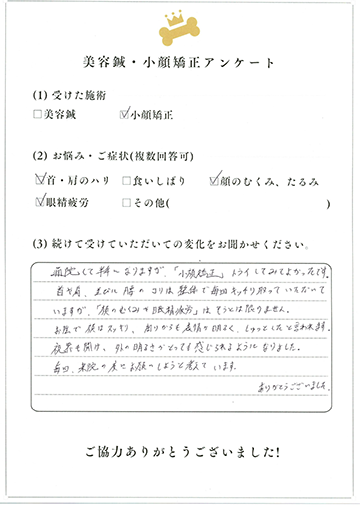 美容鍼・小顔矯正アンケート
(1) 受けた施術
□美容鍼 ☑小顔矯正
(2) お悩み・ご症状(複数回答可)
☑首・肩のハリ □食いしばり ☑顔のむくみ、たるみ
☑眼精疲労 □その他( )
(3) 続けて受けていただいての変化をお聞かせください。
して半年〜なりますが、「小顔矯正」トライしてみてよかったです。
首や肩、の コリは整体で毎回キッチリ取っていただいて
いますが、「顔のむくみや眼精疲労」はそうとは限りません。
お陰で顔はスッキリ、周りからも表情が明るく、しゅっとしたと言われます。
視界も開け、外の明るさがとっても感じられるようになりました。
毎回、来院の度にお願いしようと考えています。
ありがとうございました。
ご協力ありがとうございました!